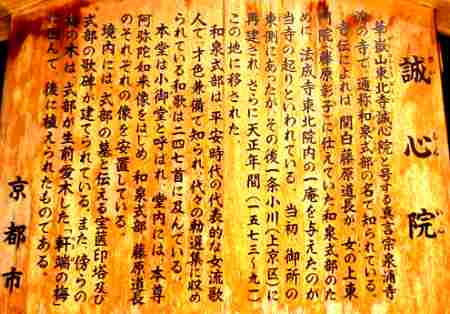 誠心院
華嶽山東北寺誠心院と号する真言宗泉涌寺
派の寺で、通称和泉式部の名で知られている。
寺伝によれば、関白藤原道長が、女の上東
門院(藤原彰子)に仕えていた和泉式部のた
めに、法成寺東北院内の一庵を与えたのが
当寺の起りといわれている。当初、御所の
東側にあったが、その後一条小川(上京区)に
再建され、さらに天正年間(一五七三〜九一)
この地に移された。
和泉式部は、平安時代の代表的な女流歌
人で、才色兼備で知られ、代々の勅選集に収め
られている和歌は二四七首に及んでいる。
本堂は小御堂と呼ばれ、堂内には、本尊
阿弥陀如来像をはじめ、和泉式部、藤原道長
のそれぞれの像を安置している。
境内には、式部の墓と伝える宝篋印塔及び
式部の歌碑が建てられている。また、傍らの
梅の木は、式部が生前愛木した「軒端の梅」
に因んで、後に植えられたものである。
京都市